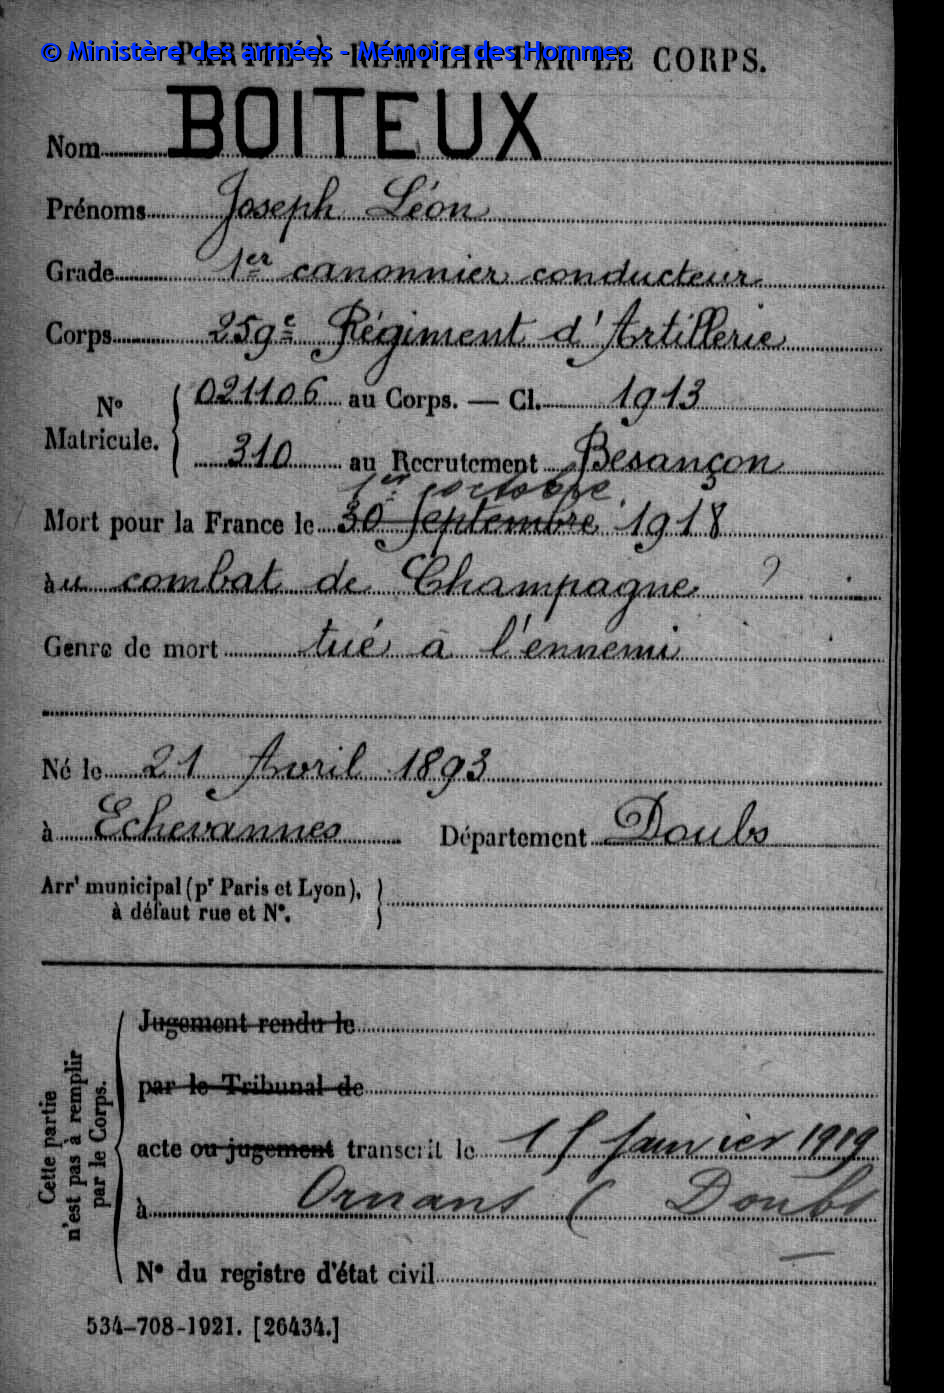 © Ministère des armées - Mémoire des Hommes
PARTIE À REMPLIR PAR LE CORPS.
Nom BOITEUX
Prénoms Joseph Léon
Grade 1er canonnier conducteur
Corps 259e Régiment d'Artillerie
No Matricule. 021106 au Corps. — Cl. 1913
310 au Recrutement Besançon
1er octobre
Mort pour la France le 30 Septembre 1918
au combat de Champagne ?
Genre de mort tué à l'ennemi
Né le 21 Avril 1893
à Echevannes Département Doubs
Arrt municipal (pr Paris et Lyon),
à défaut rue et No.
Cette partie n'est pas à remplir par le Corps.
Jugement rendu le
par le Tribunal de
acte ou jugement transcrit le 15 Janvier 1919
à Ornans (Doubs
No du registre d'état civil
534-708-1921. [26434.]